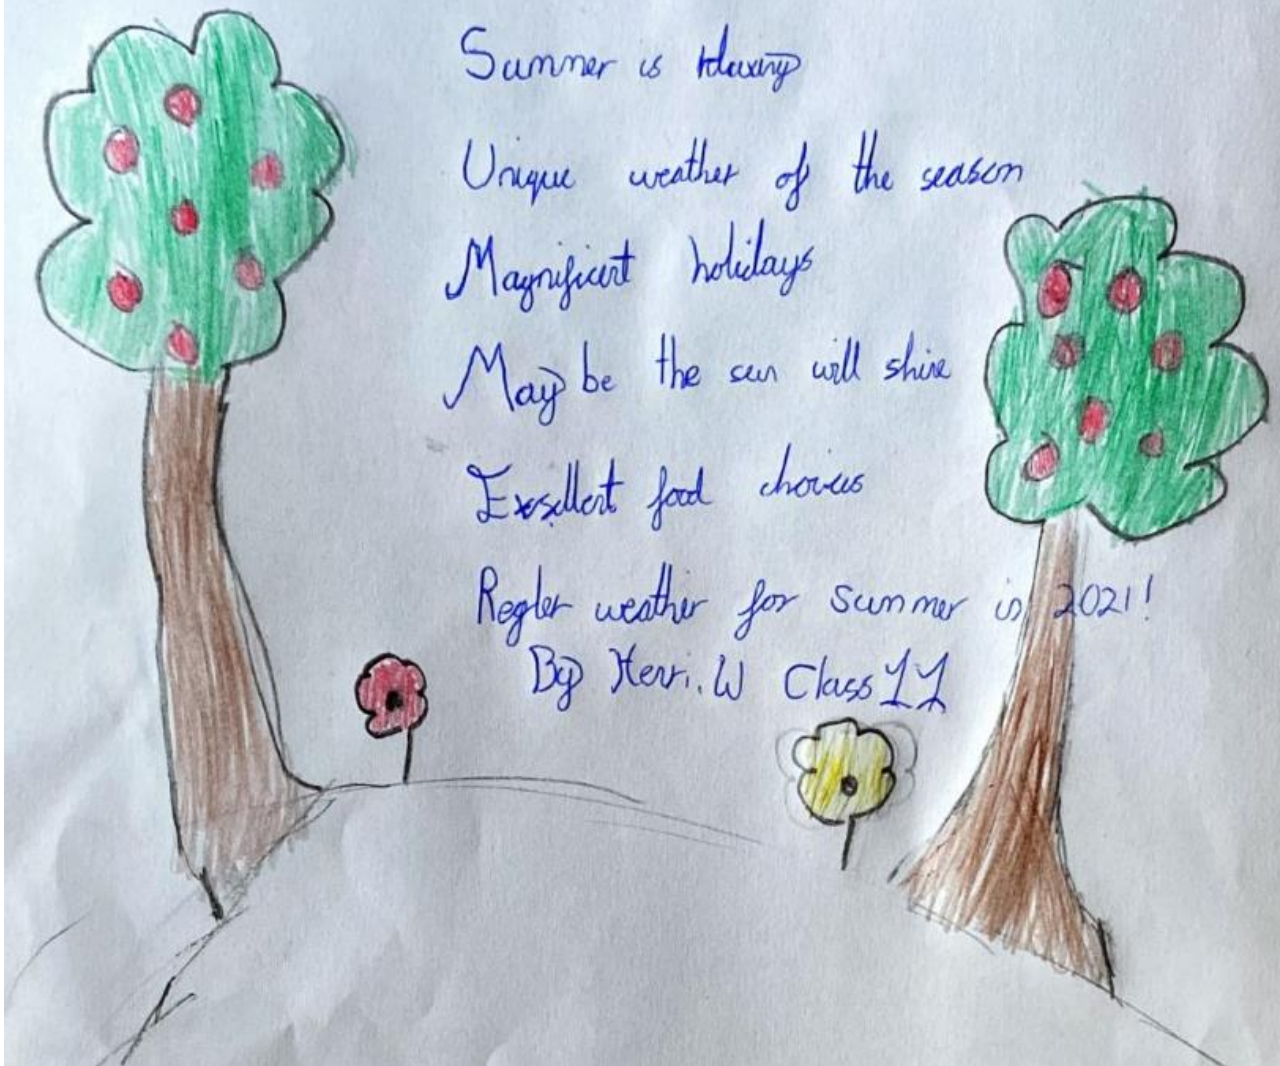 Summer is relaxing
Unique weather of the season
Magnificent holidays
May be the sun will shine
Exsellent food choices
Regler weather for summer in 2021!
By Kerri.W Class 11